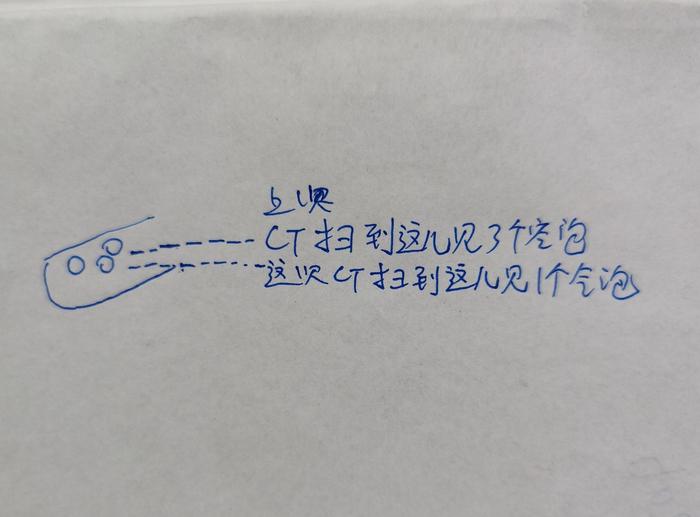 上次
CT扫到这儿见3个空泡
这次CT扫到这儿见1个空泡